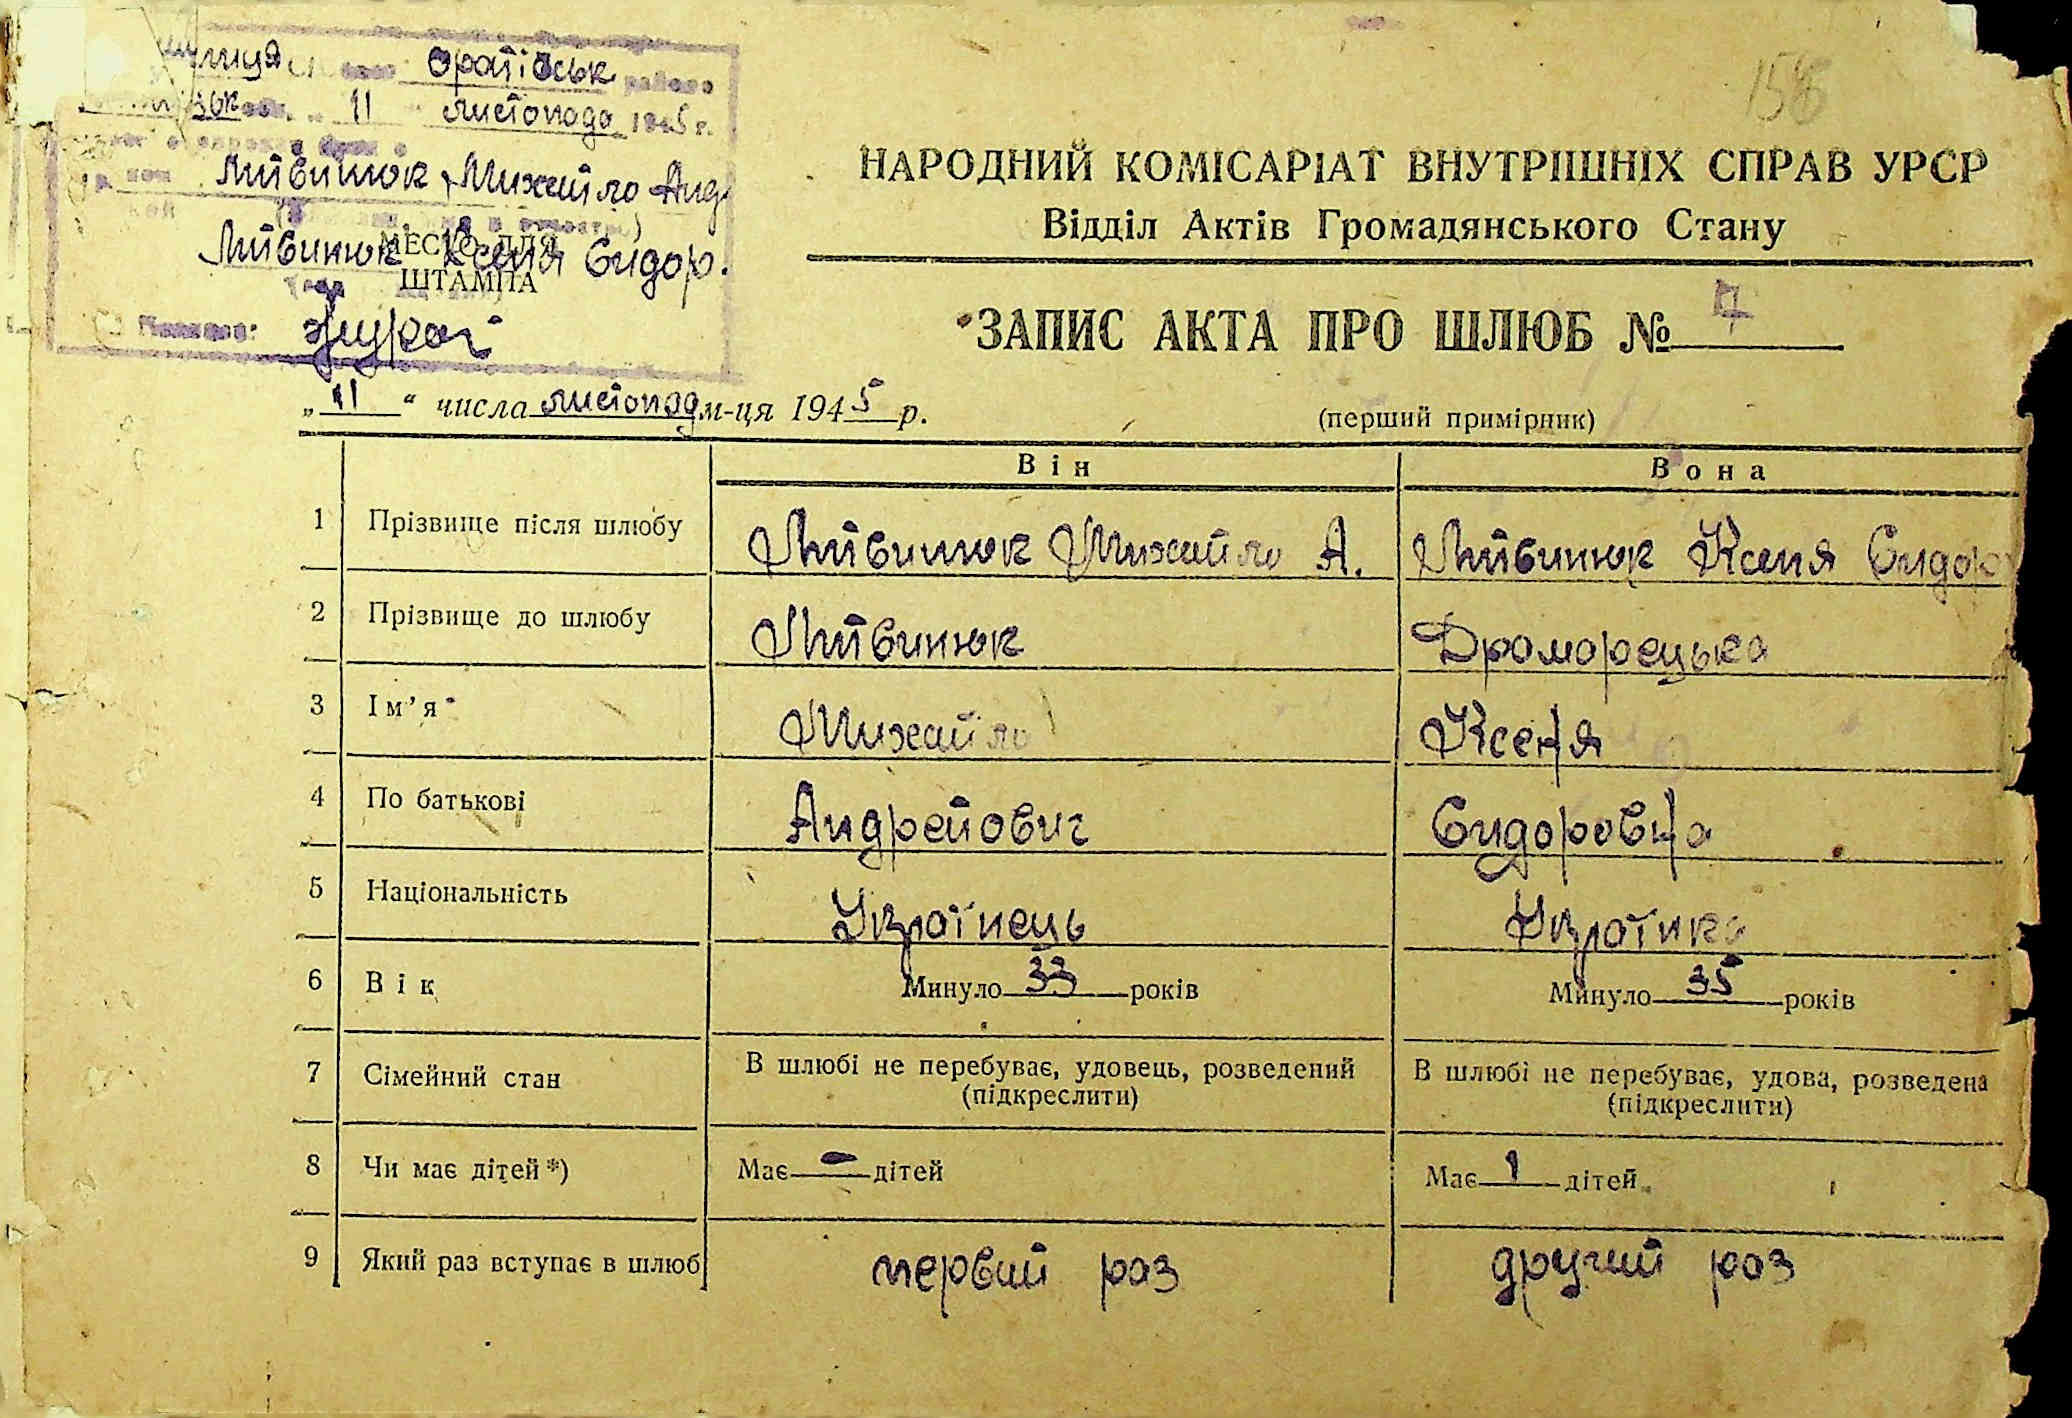 Оратівськ района
11 листопада 1945 г.
Литвинюк Михайло Анд.
Литвинюк Ксеня Сидор.
МЕСТО ДЛЯ
ШТАМПА
158
НАРОДНИЙ КОМІСАРІАТ ВНУТРІШНІХ СПРАВ УРСР
Відділ Актів Громадянського Стану
ЗАПИС АКТА ПРО ШЛЮБ № 7
„11“ числа листопад м-ця 1945 р.
(перший примірник)
Він Вона
1 Прізвище після шлюбу Литвинюк Михайло А. Литвинюк Ксеня Сидор
2 Прізвище до шлюбу Литвинюк Дроморецька
3 Ім’я Михайло Ксеня
4 По батькові Андрейович Сидоровна
5 Національність Українець Українка
6 Вік Минуло 33 років Минуло 35 років
7 Сімейний стан В шлюбі не перебуває, удовець, розведений В шлюбі не перебуває, удова, розведена
(підкреслити) (підкреслити)
8 Чи має дітей*) Має - дітей Має 1 дітей
9 Який раз вступає в шлюб первий раз другий раз